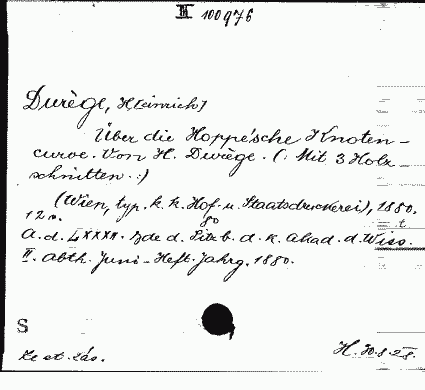 III 100976
Durège, H[einrich]
Über die Hoppe'sche Knoten-
curve. Von H. Durège. (: Mit 3 Holz
schnitten. :)
(Wien, typ. k. k. Hof. u. Staatsdruckerei), 1880.
12 o. 8o t
A. d. LXXXII. Bde d. Sitz b. d. k. Akad. d. Wiss.
II. Abth. Juni-Heft. Jahrg. 1880.
S
H. 30.8.28.